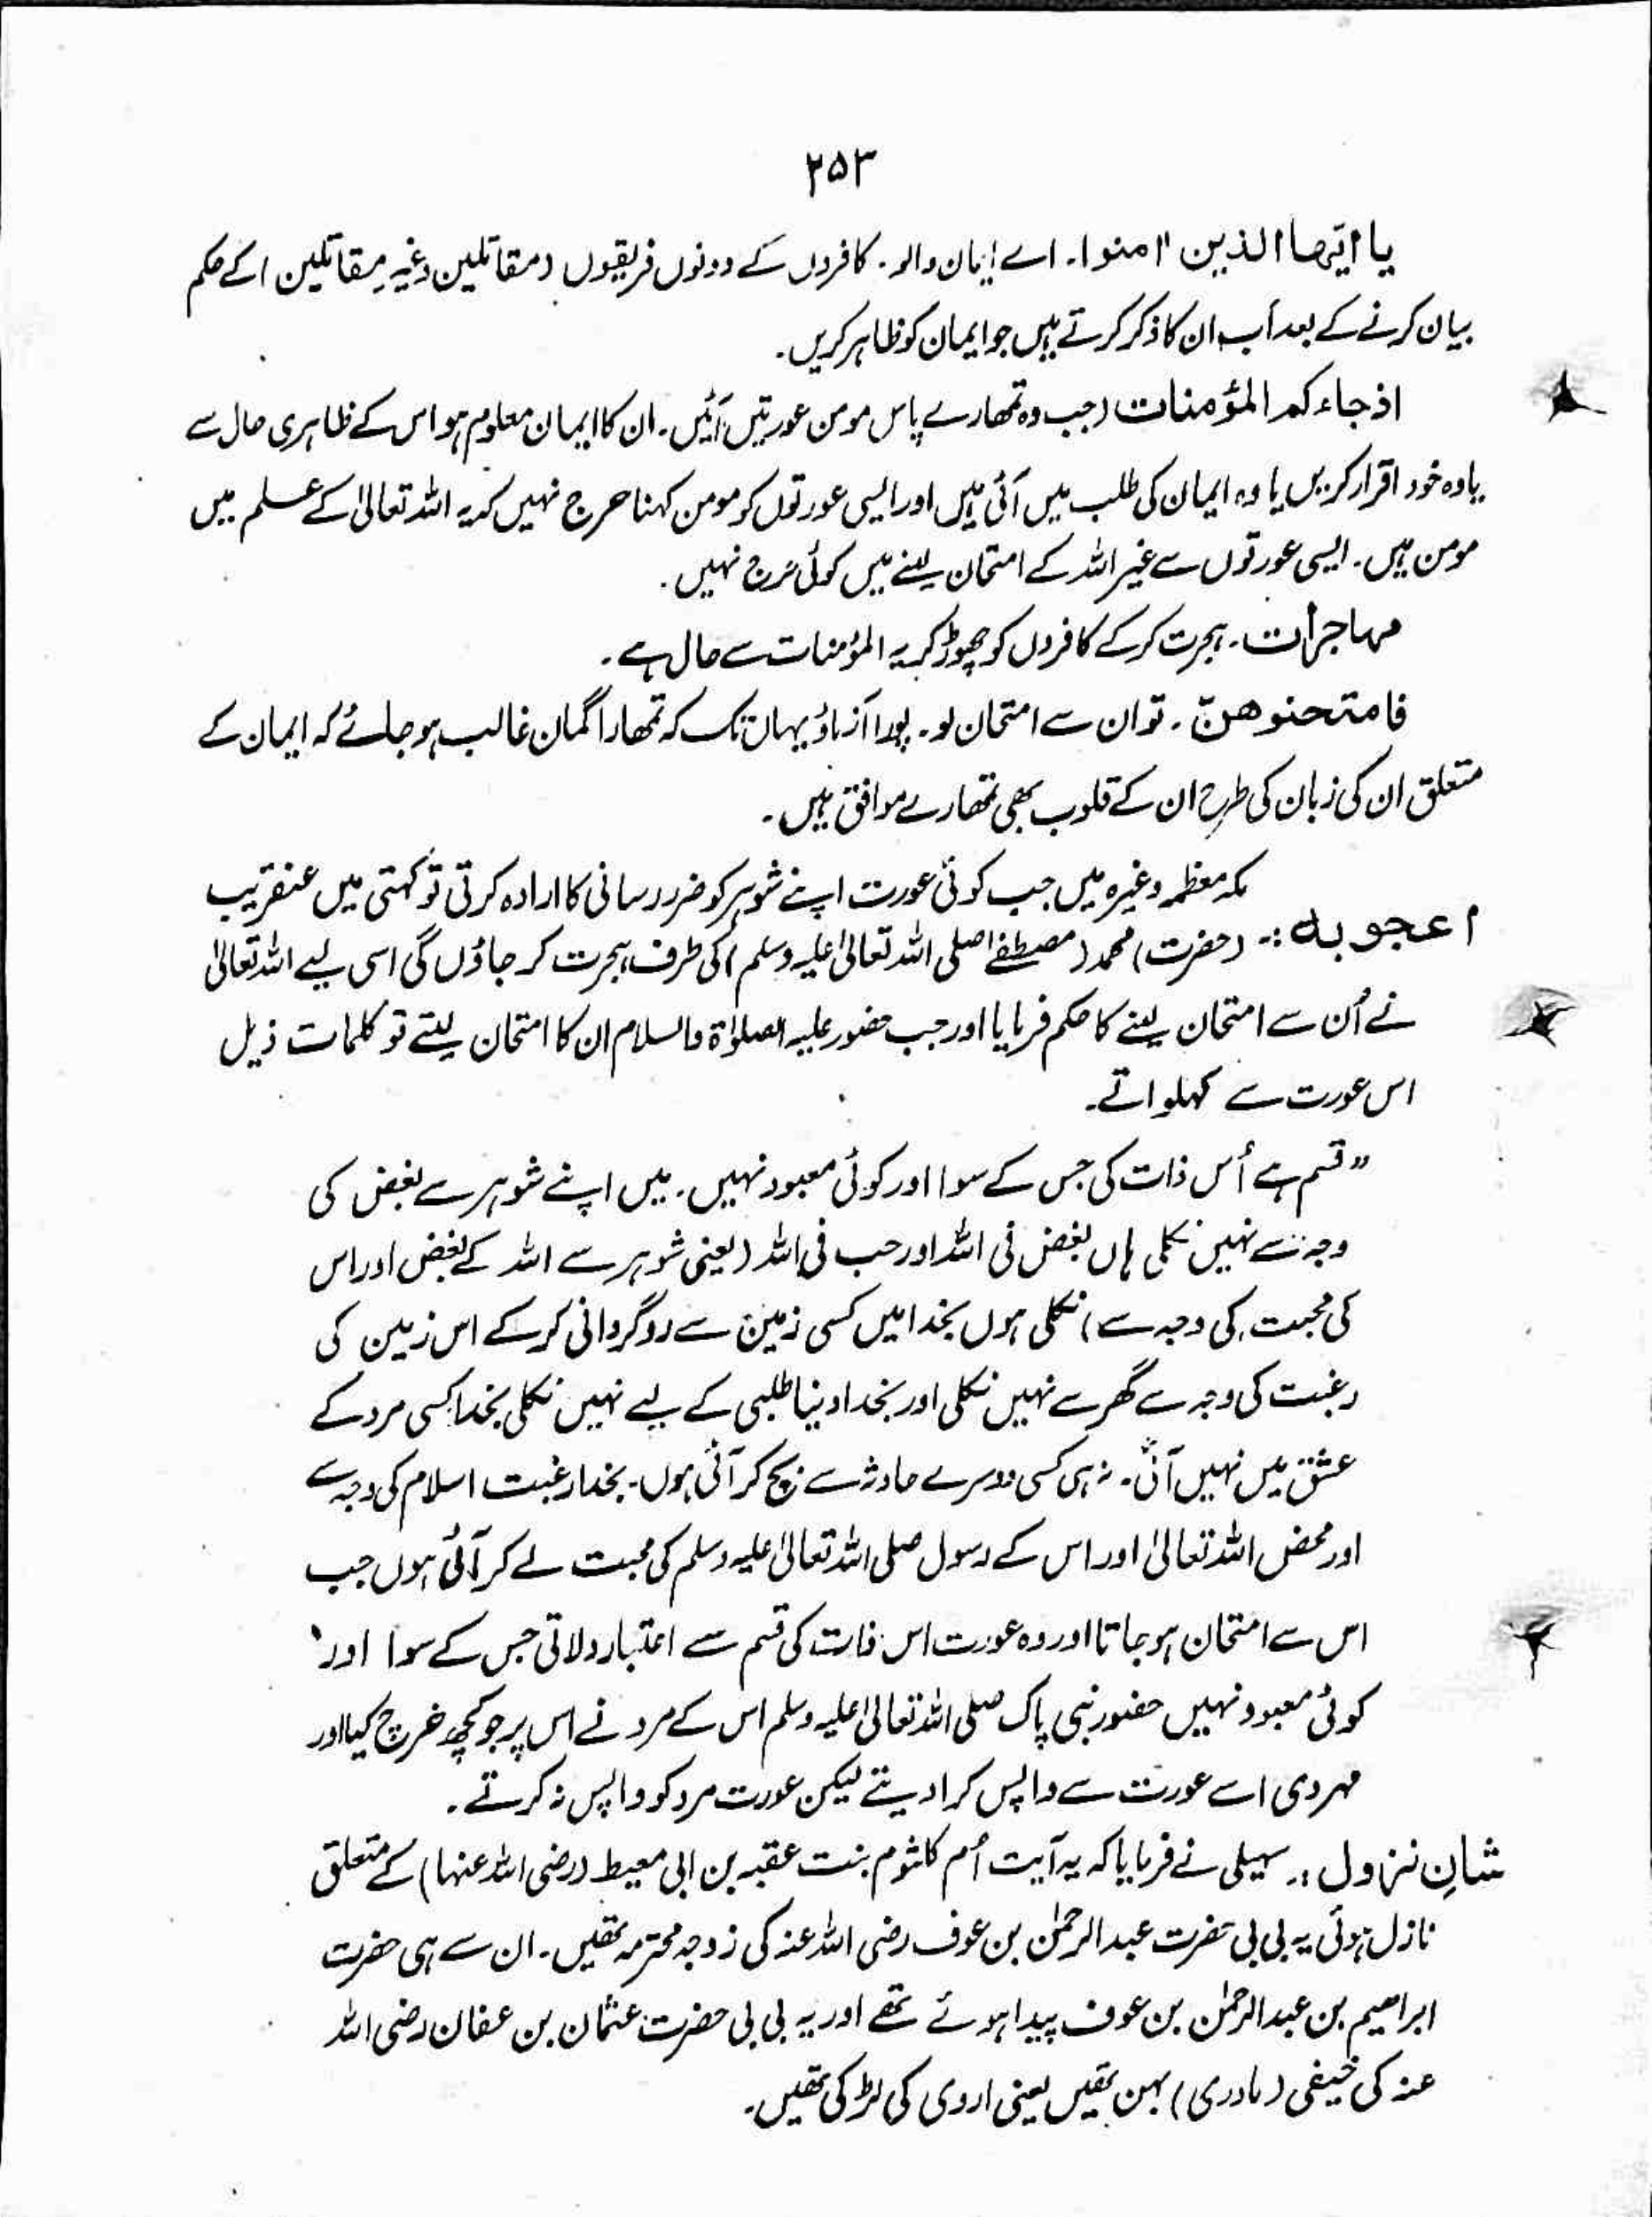 ۲۵۳
یا ایّھا الذین اٰمنوا۔ اے ایمان والو۔ کافروں کے دونوں فریقوں (مقاتلین وغیر مقاتلین) کے حکم
بیان کرنے کے بعد اب ان کا ذکر کرتے ہیں جو ایمان کو ظاہر کریں۔
اذ جاءکم المؤمنات (جب وہ تمھارے پاس مومن عورتیں آئیں۔ ان کا ایمان معلوم ہو اس کے ظاہری حال سے
یا وہ خود اقرار کریں یا وہ ایمان کی طلب میں آئی ہیں اور ایسی عورتوں کو مومن کہنا حرج نہیں کہ یہ اللہ تعالیٰ کے علم میں
مومن ہیں۔ ایسی عورتوں سے غیر اللہ کے امتحان لینے میں کوئی حرج نہیں۔
مہاجرات۔ ہجرت کرکے کافروں کو چھوڑ کر یہ المؤمنات سے حال ہے۔
فامتحنوھنّ۔ تو ان سے امتحان لو۔ پورا آزماؤ یہاں تک کہ تمھارا گمان غالب ہو جائے کہ ایمان کے
متعلق ان کی زبان کی طرح ان کے قلوب بھی تمھارے موافق ہیں۔
مکہ معظمہ وغیرہ میں جب کوئی عورت اپنے شوہر کو ضرر رسانی کا ارادہ کرتی تو کہتی میں عنقریب
اعجوبہ :۔ (حضرت) محمد (مصطفےٰ صلی اللہ تعالیٰ علیہ وسلم) کی طرف ہجرت کر جاؤں گی اسی لیے اللہ تعالیٰ
نے اُن سے امتحان لینے کا حکم فرمایا اور جب حضور علیہ الصلوٰۃ والسلام ان کا امتحان لیتے تو کلمات ذیل
اس عورت سے کہلواتے۔
"قسم ہے اُس ذات کی جس کے سوا اور کوئی معبود نہیں۔ میں اپنے شوہر سے بغض کی
وجہ سے نہیں نکلی ہاں بغض فی اللہ اور حب فی اللہ (یعنی شوہر سے اللہ کے بغض اور اس
کی محبت کی وجہ سے) نکلی ہوں بخدا میں کسی زمین سے روگردانی کرکے اس زمین کی
رغبت کی وجہ سے گھر سے نہیں نکلی اور بخدا دنیا طلبی کے لیے نہیں نکلی بخدا کسی مرد کے
عشق میں نہیں آئی۔ نہ ہی کسی دوسرے حادثہ سے بچ کر آئی ہوں۔ بخدا رغبت اسلام کی وجہ سے
اور محض اللہ تعالیٰ اور اس کے رسول صلی اللہ تعالیٰ علیہ وسلم کی محبت لے کر آئی ہوں جب
اس سے امتحان ہو جاتا اور وہ عورت اس ذات کی قسم سے اعتبار دلاتی جس کے سوا اور
کوئی معبود نہیں حضور نبی پاک صلی اللہ تعالیٰ علیہ وسلم اس کے مرد نے اس پر جو کچھ خرچ کیا اور
مہر دی اسے عورت سے واپس کرا دیتے لیکن عورت مرد کو واپس نہ کرتے۔
شانِ نزول :۔ سہیلی نے فرمایا کہ یہ آیت اُم کلثوم بنت عقبہ بن ابی معیط (رضی اللہ عنہا) کے متعلق
نازل ہوئی یہ بی بی حضرت عبدالرحمٰن بن عوف رضی اللہ عنہ کی زوجہ محترمہ تھیں۔ ان سے ہی حضرت
ابراھیم بن عبدالرحمٰن بن عوف پیدا ہوئے تھے اور یہ بی بی حضرت عثمان بن عفان رضی اللہ
عنہ کی خیفی (مادری) بہن تھیں یعنی اروی کی لڑکی تھیں۔